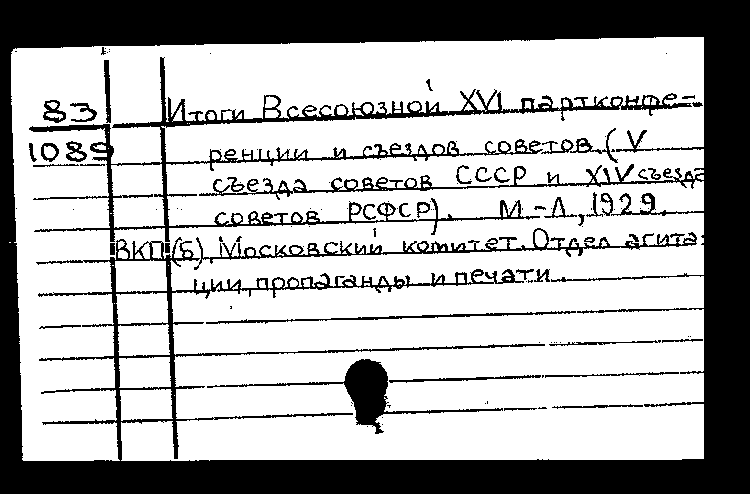 83 Итоги Всесоюзной XVI партконфе-
1089 ренции и съездов советов. (V
съезда советов СССР и XIV съезда
советов РСФСР). М-Л, 1929.
ВКП(б). Московский комитет. Отдел агита-
ции, пропаганды и печати.